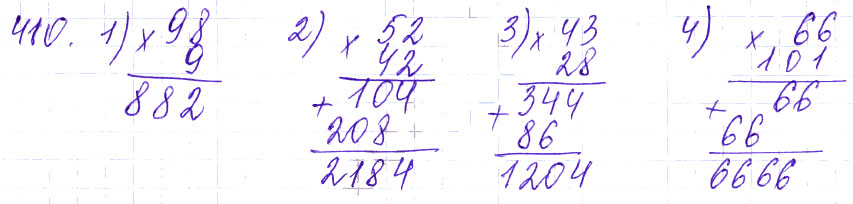 410. 1) × 98 2) × 52 3) × 43 4) × 66
9 42 28 101
882 + 104 + 344 + 66
208 86 66
2184 1204 6666